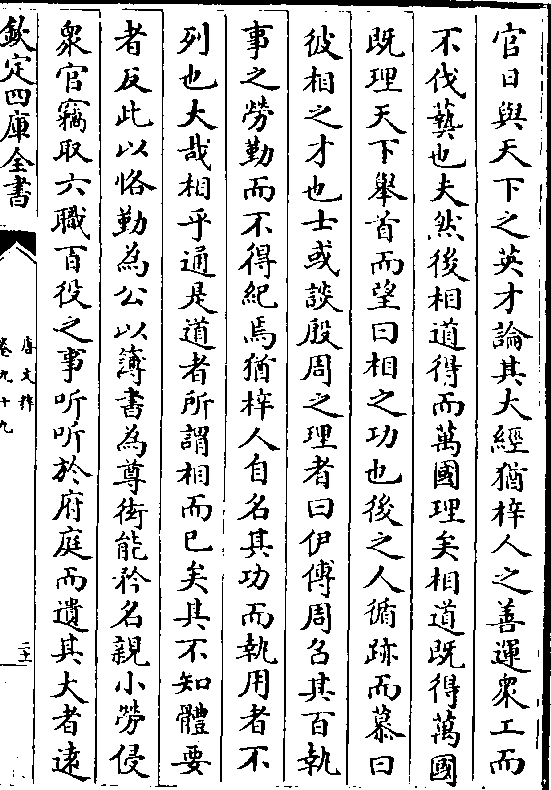 官日與天下之英才論其大經猶梓人之善運眾工而
不伐藝也夫然後相道得而萬國理矣相道既得萬國
既理天下舉首而望曰相之功也後之人循跡而慕曰
彼相之才也士或談殷周之理者曰伊傅周召其百執
事之勞勤而不得紀焉猶梓人自名其功而執用者不
列也大哉相乎通是道者所謂相而已矣其不知體要
者反此以恪勤為公以簿書為尊衒能矜名親小勞侵
衆官竊取六職百役之事听听於府庭而遺其大者遠
欽定四庫全書
唐文粹
卷九十九